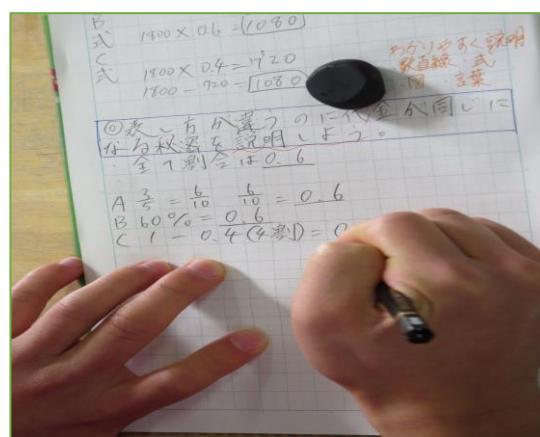 B
式 1800×0.6=1080
C
式 1800×0.4=720
1800-720=1080
わかりやすく説明
数直線・式
図・言葉
◎表し方が違うのに代金が同じに
なる秘密を説明しよう。
全て割合は0.6
A 3/5=6/10 6/10=0.6
B 60%=0.6
C 1-0.4(4割)=0